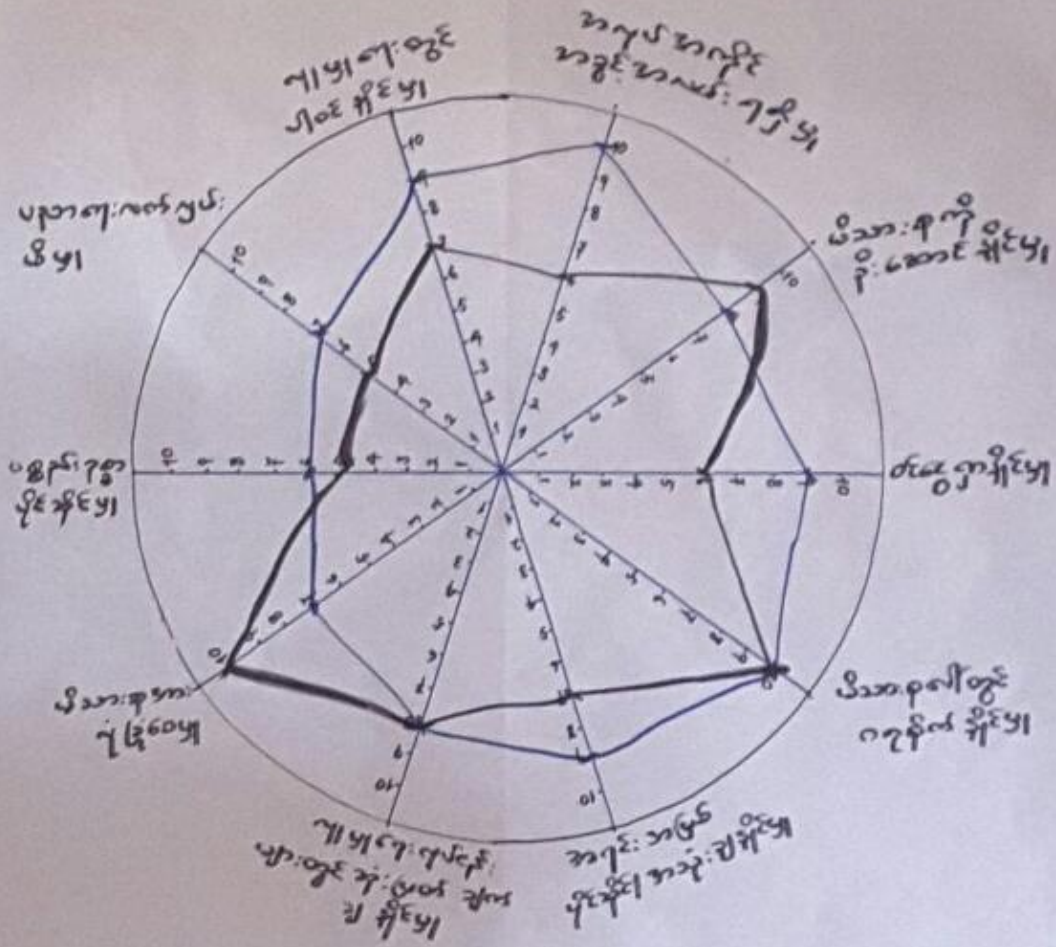 လူမှုရေးတွင်
ပါဝင်နိုင်မှု
အလုပ်အကိုင်
အခွင့်အလမ်းရရှိမှု
မိသားစုကို
ဦးဆောင်နိုင်မှု
ဝင်ငွေရှာနိုင်မှု
မိသားစုပေါ်တွင်
ဂရုစိုက်နိုင်မှု
အရင်းအမြစ်
ပိုင်ဆိုင်၊ အသုံးချနိုင်မှု
လူမှုရေးလုပ်ငန်း
များတွင် ဆုံးဖြတ်ချက်
ချနိုင်မှု
မိသားစုအား
လုံခြုံစေမှု
ပစ္စည်းဥစ္စာ
ပိုင်ဆိုင်မှု
ပညာရေးလက်လှမ်း
မီမှု
1 2 3 4 5 6 7 8 9 10